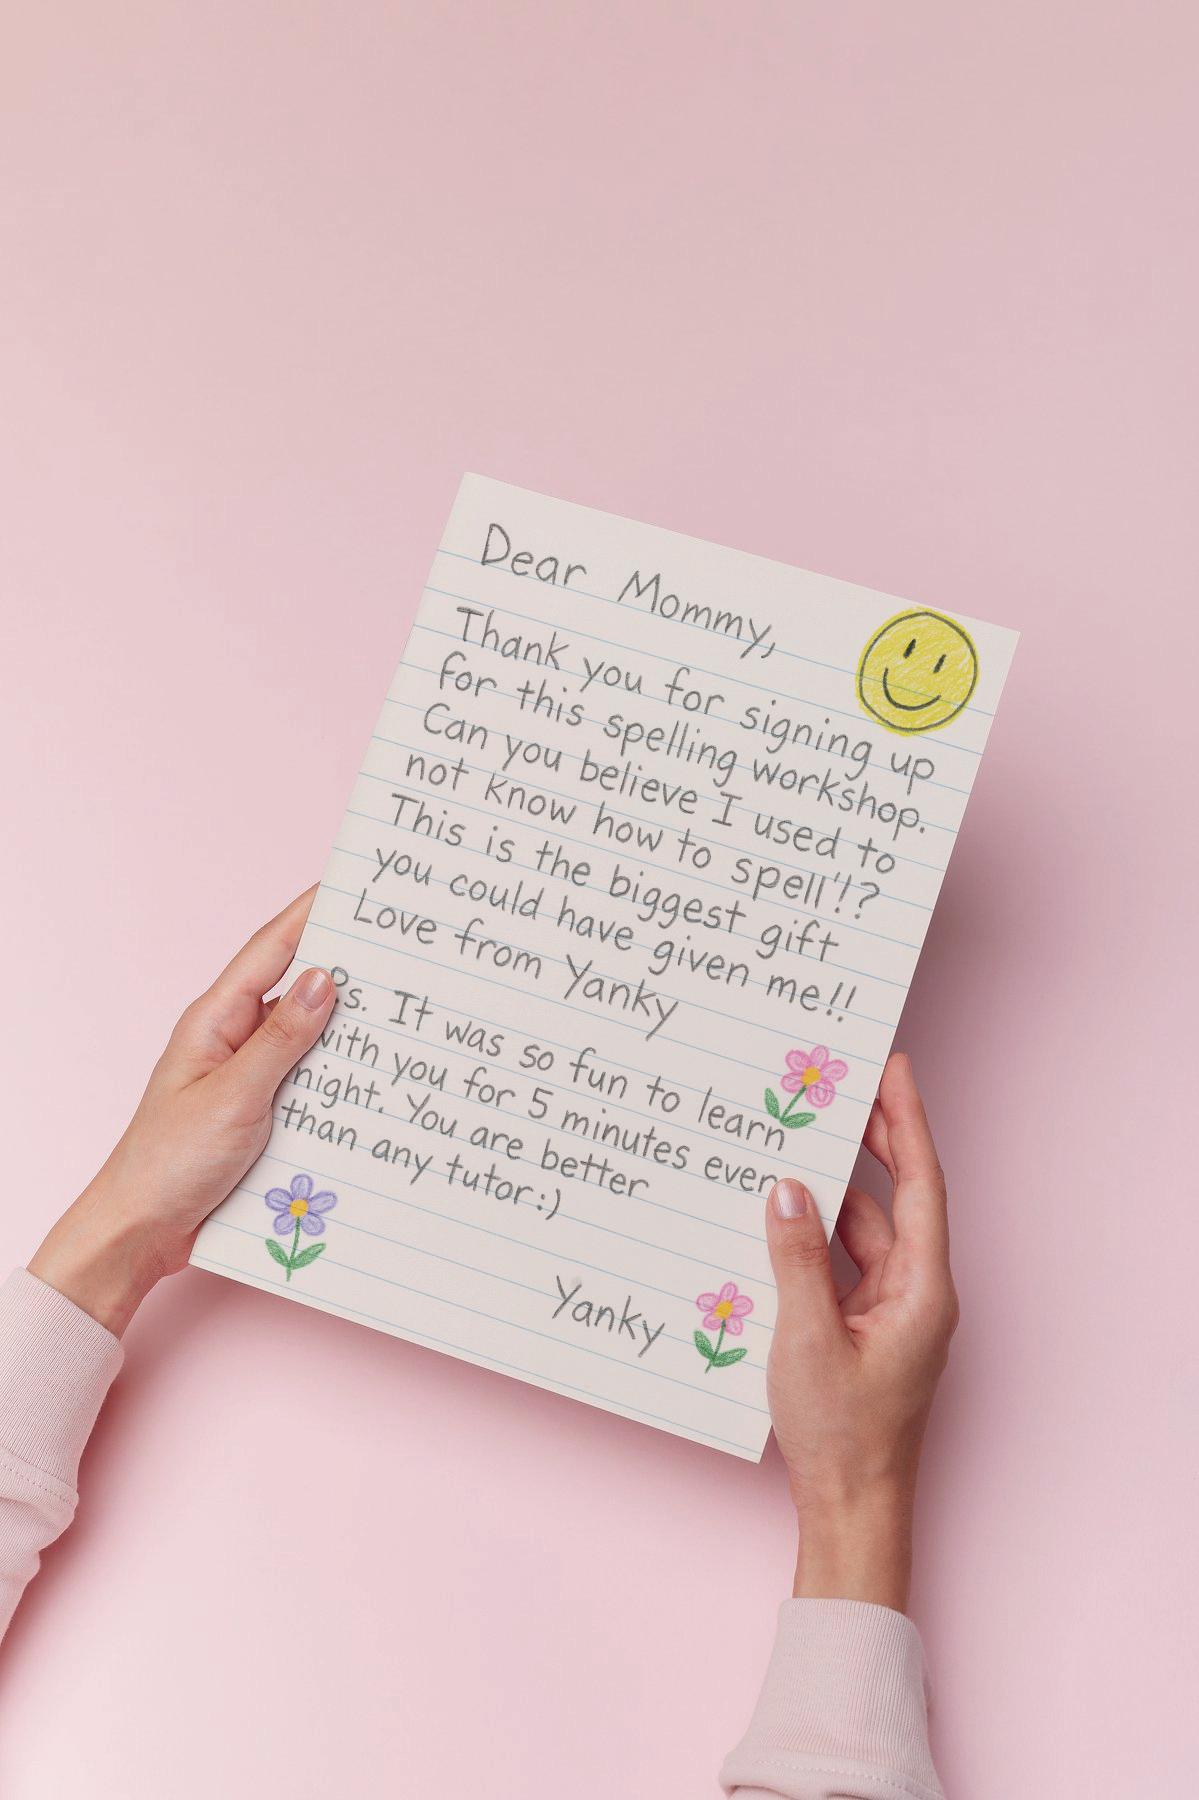 Dear Mommy,
Thank you for signing up
for this spelling workshop.
Can you believe I used to
not know how to spell'!?
This is the biggest gift
you could have given me!!
Love from Yanky
Ps. It was so fun to learn
with you for 5 minutes every
night. You are better
than any tutor:)
Yanky